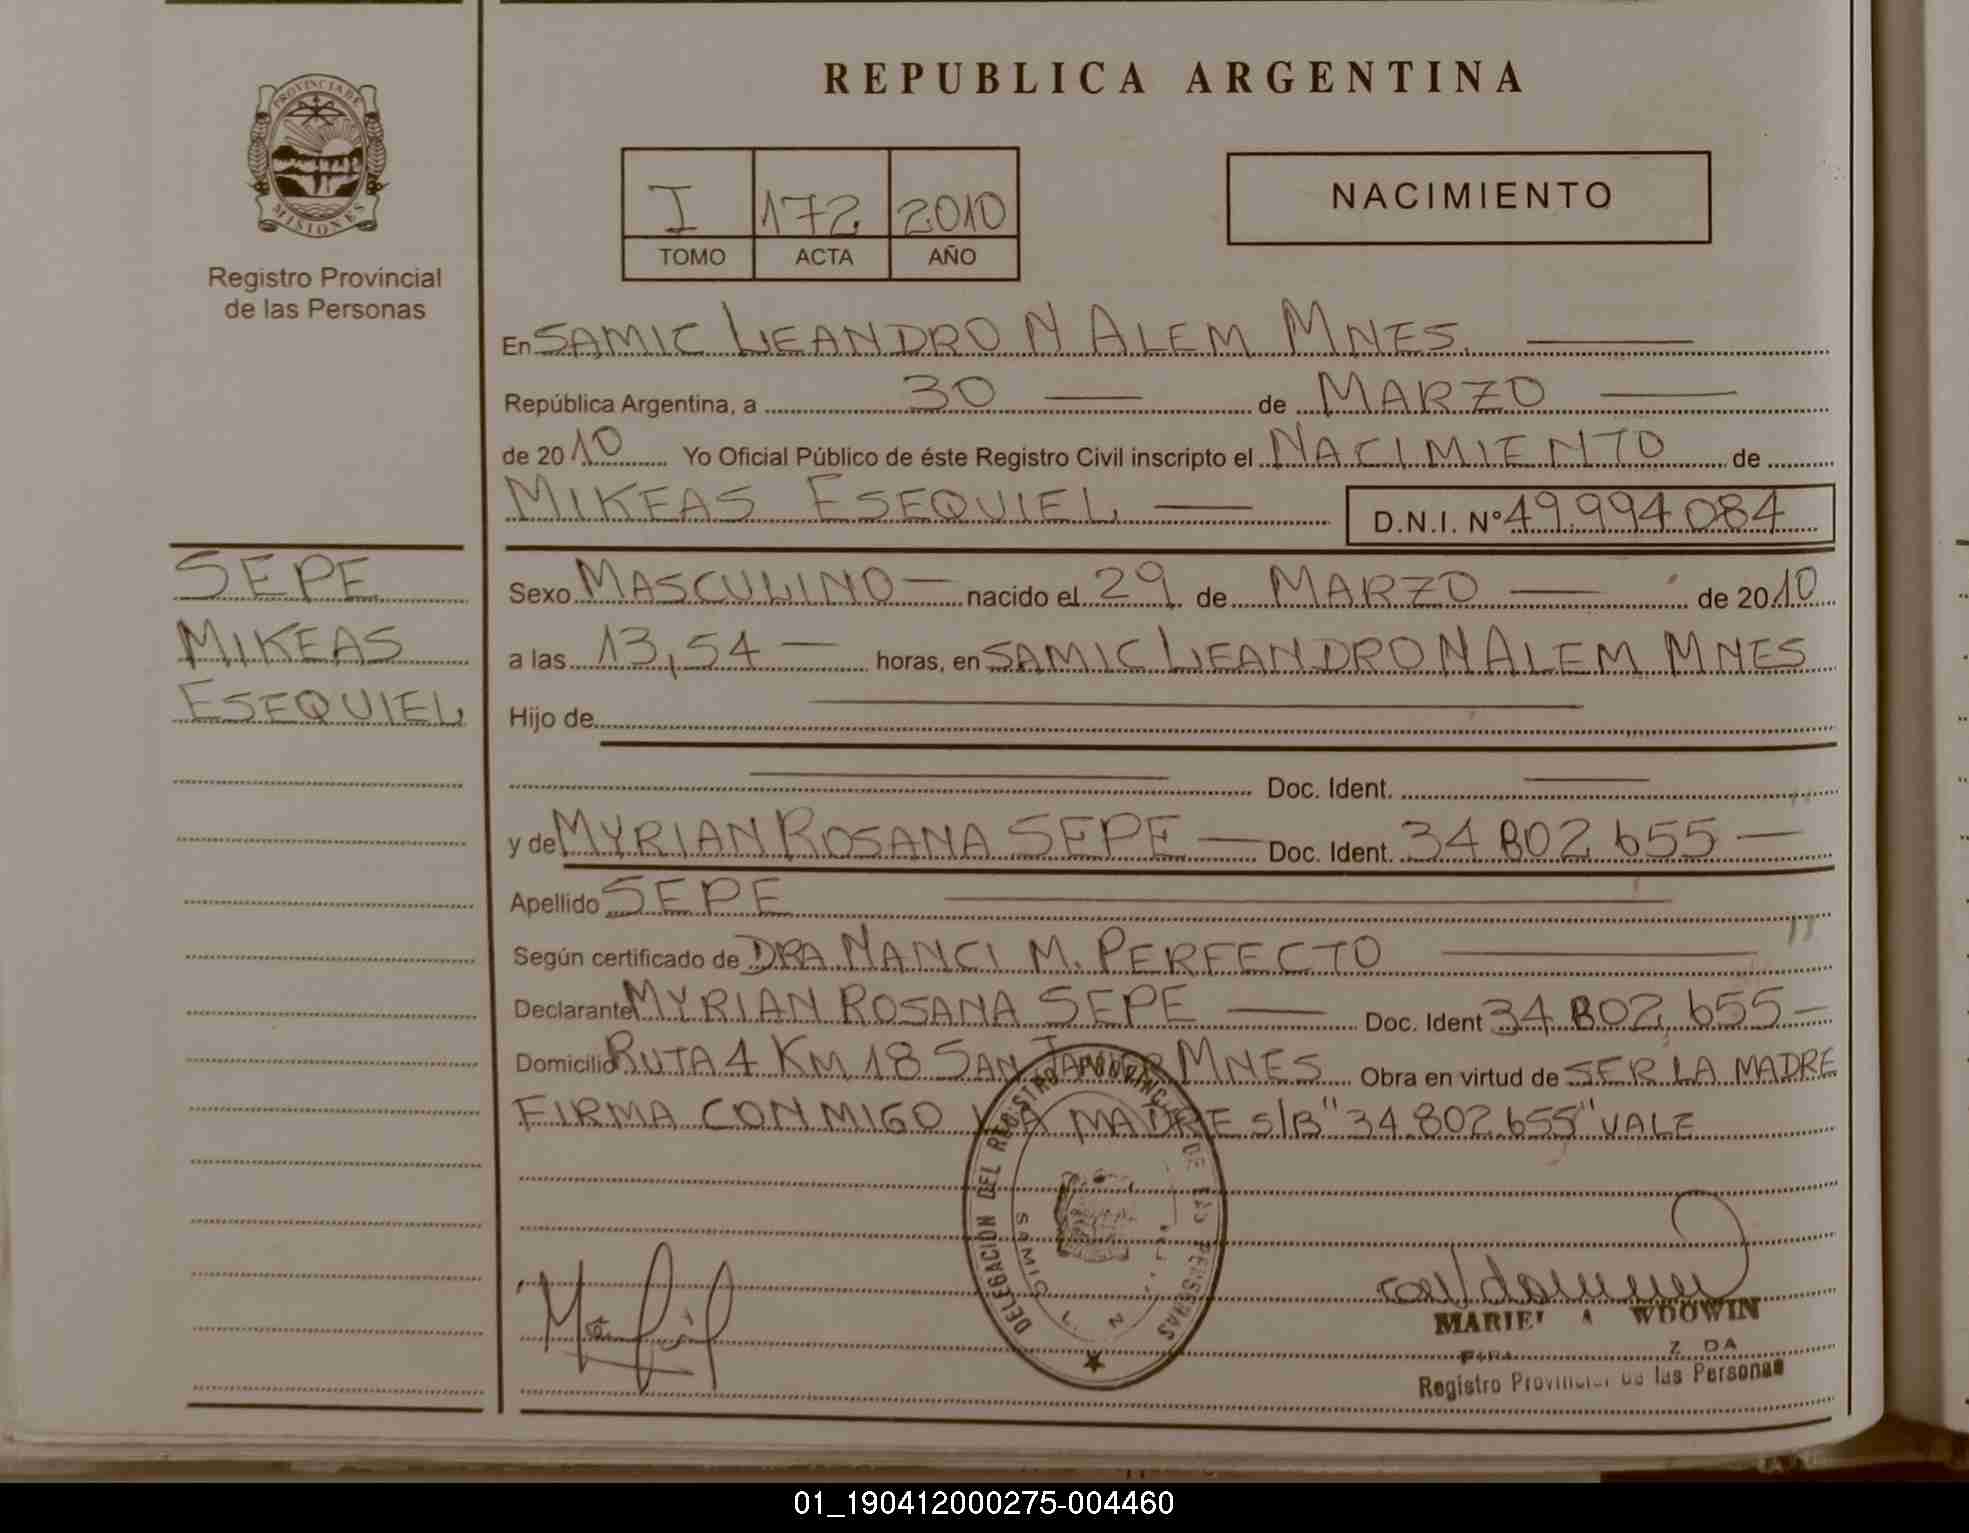 REPUBLICA ARGENTINA
PROVINCIA DE
MISIONES
Registro Provincial
de las Personas
I 172 2010
TOMO ACTA AÑO
NACIMIENTO
En SAMIC LEANDRO N ALEM MNES.
República Argentina, a 30 de MARZO
de 2010 Yo Oficial Público de éste Registro Civil inscripto el NACIMIENTO de
MIKEAS ESEQUIEL D.N.I. N° 49.994.084
SEPE
MIKEAS
ESEQUIEL
Sexo MASCULINO nacido el 29 de MARZO de 2010
a las 13,54 horas, en SAMIC LEANDRO N ALEM MNES
Hijo de
Doc. Ident.
y de MYRIAN ROSANA SEPE Doc. Ident. 34 802 655
Apellido SEPE
Según certificado de DRA NANCI M. PERFECTO
Declarante MYRIAN ROSANA SEPE Doc. Ident 34 802 655
Domicilio RUTA 4 KM 18 SAN JAVIER MNES Obra en virtud de SER LA MADRE
FIRMA CONMIGO LA MADRE S/B "34.802.655" VALE
DELEGACION DEL REGISTRO PROVINC DE LAS PERSONAS
SAMIC L. N.
MARIEL A WDOWIN
Registro Provincial de las Personas
01_190412000275-004460